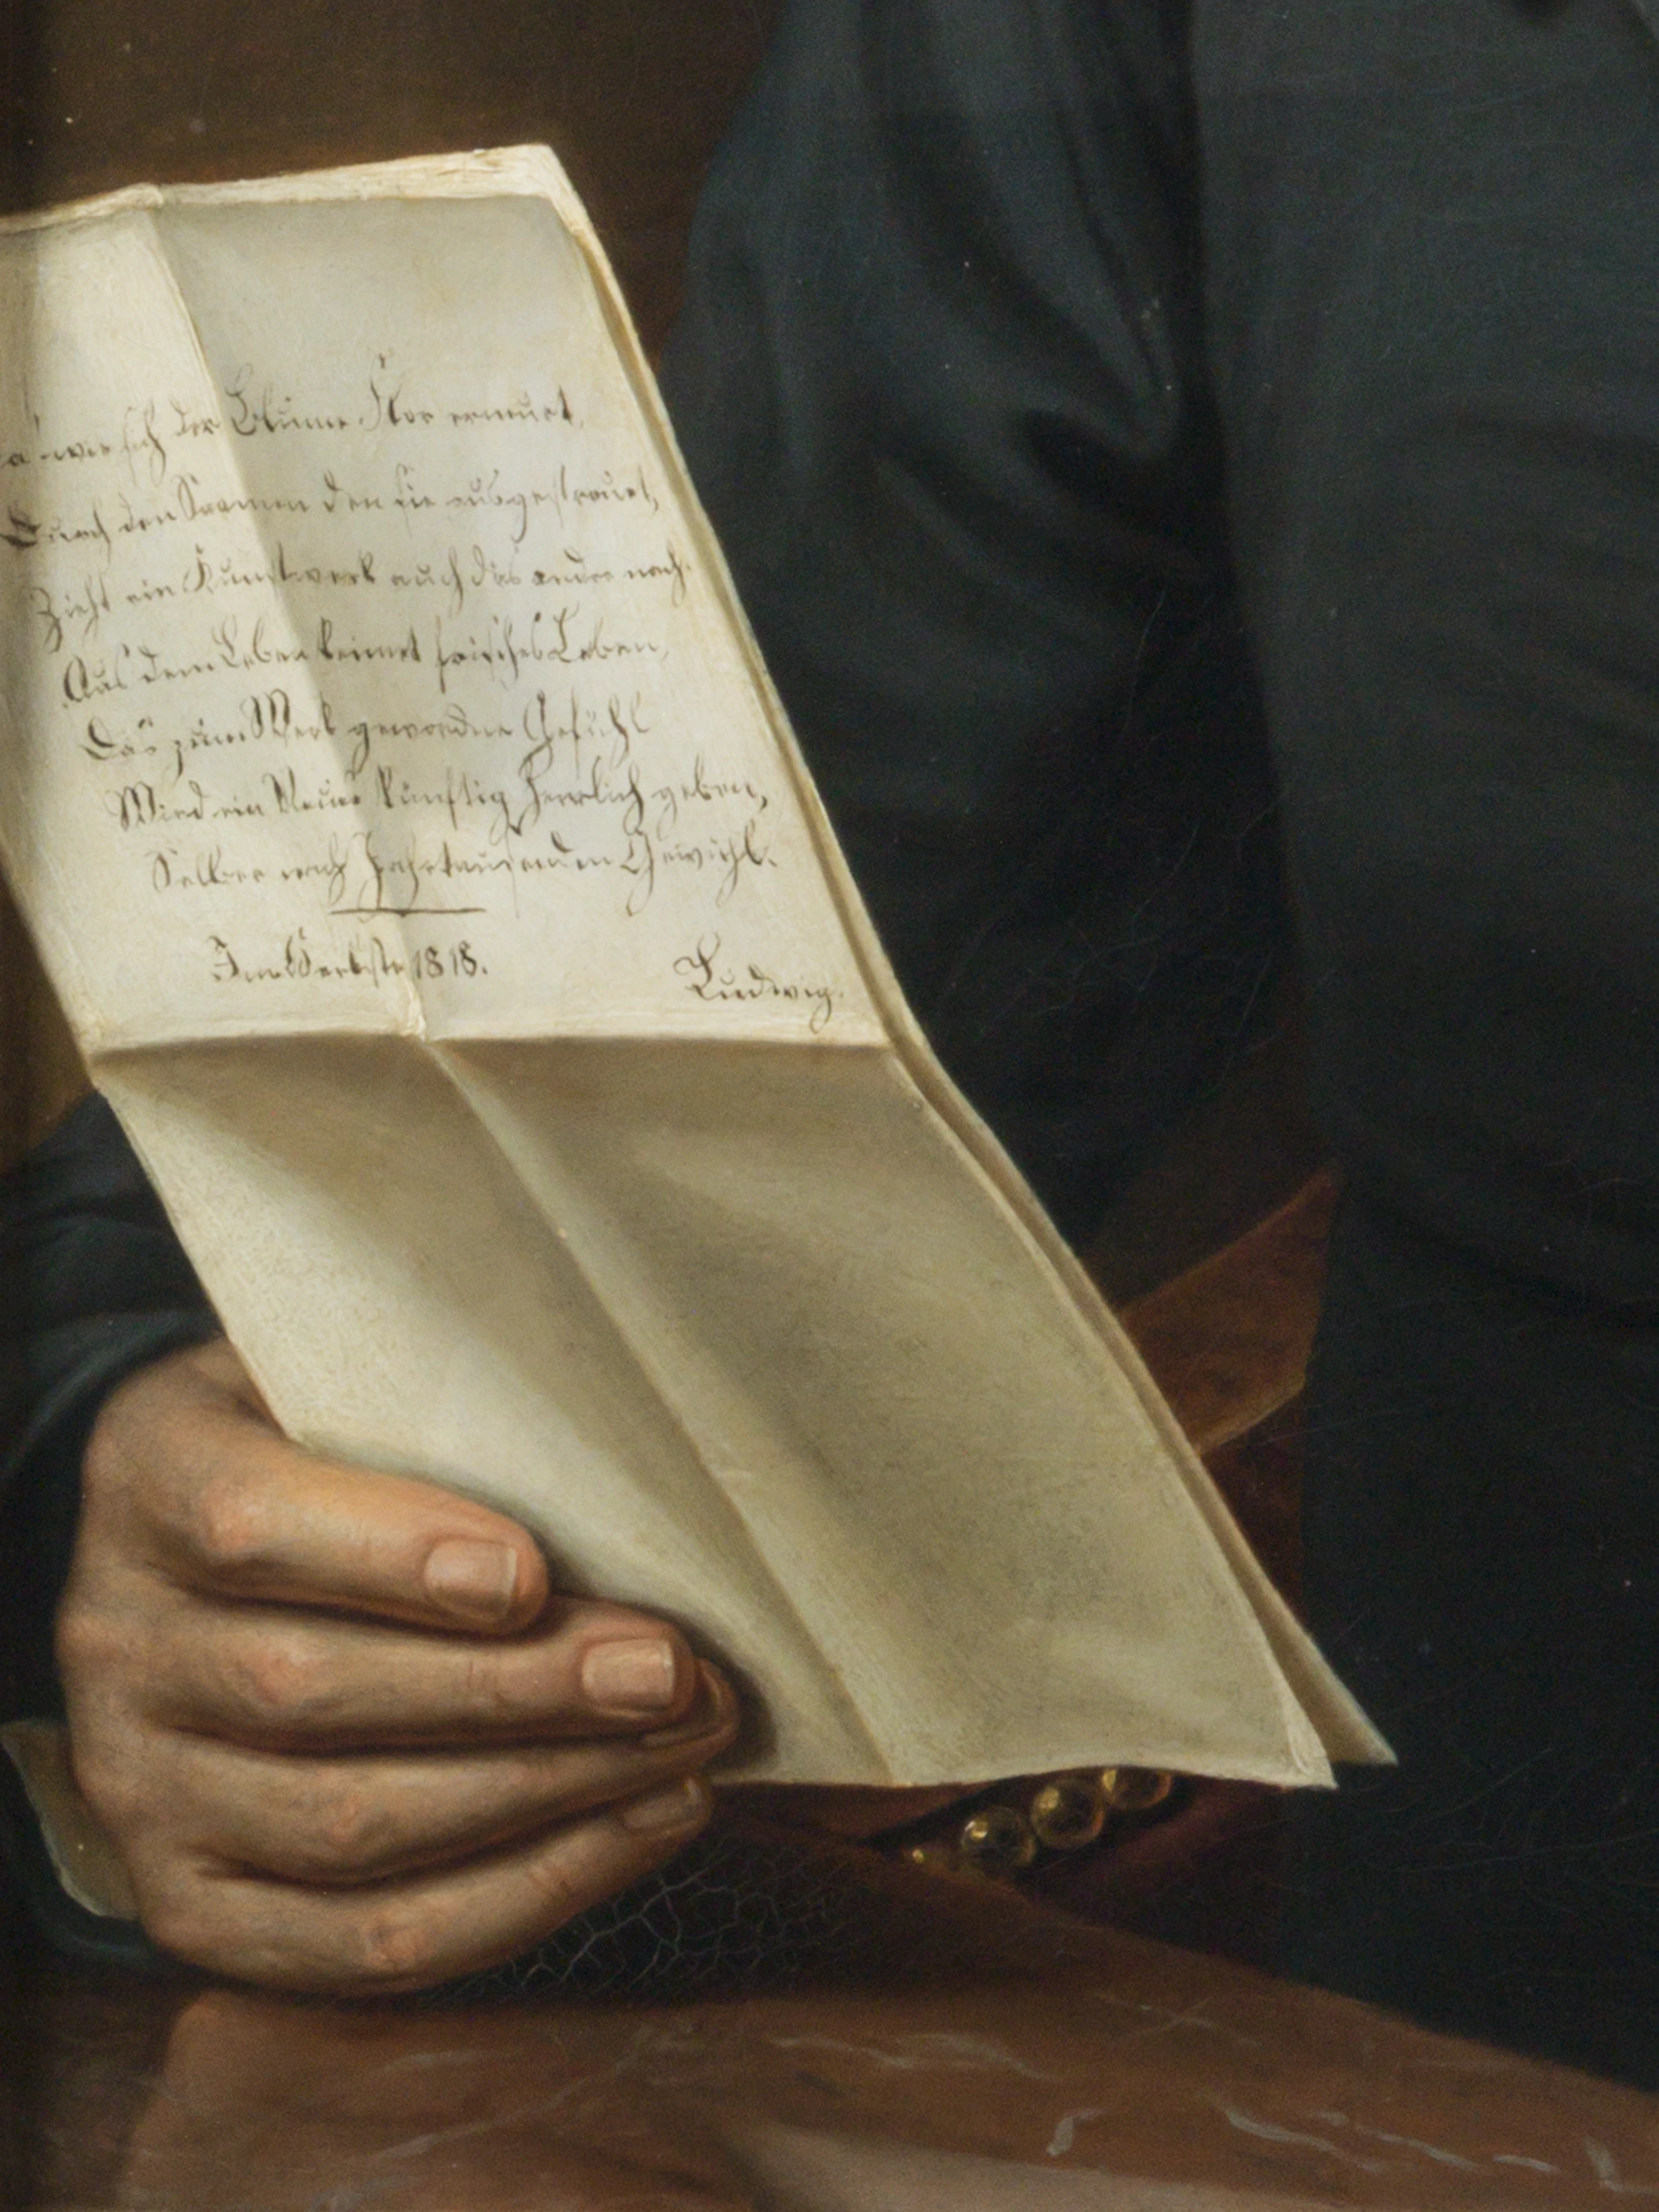 a! wie sich der Blume Flor erneuet,
Durch den Saamen den sie ausgestreuet,
Zieht ein Kunstwerk auch das andre nach.
Aus dem Leben keimet frisches Leben,
Das zum Werk gewordne Gefühl
Wird ein Neues künftig herrlich geben,
Selber nach Jahrtausenden Gewühl.
Im Herbste 1818.
Ludwig.